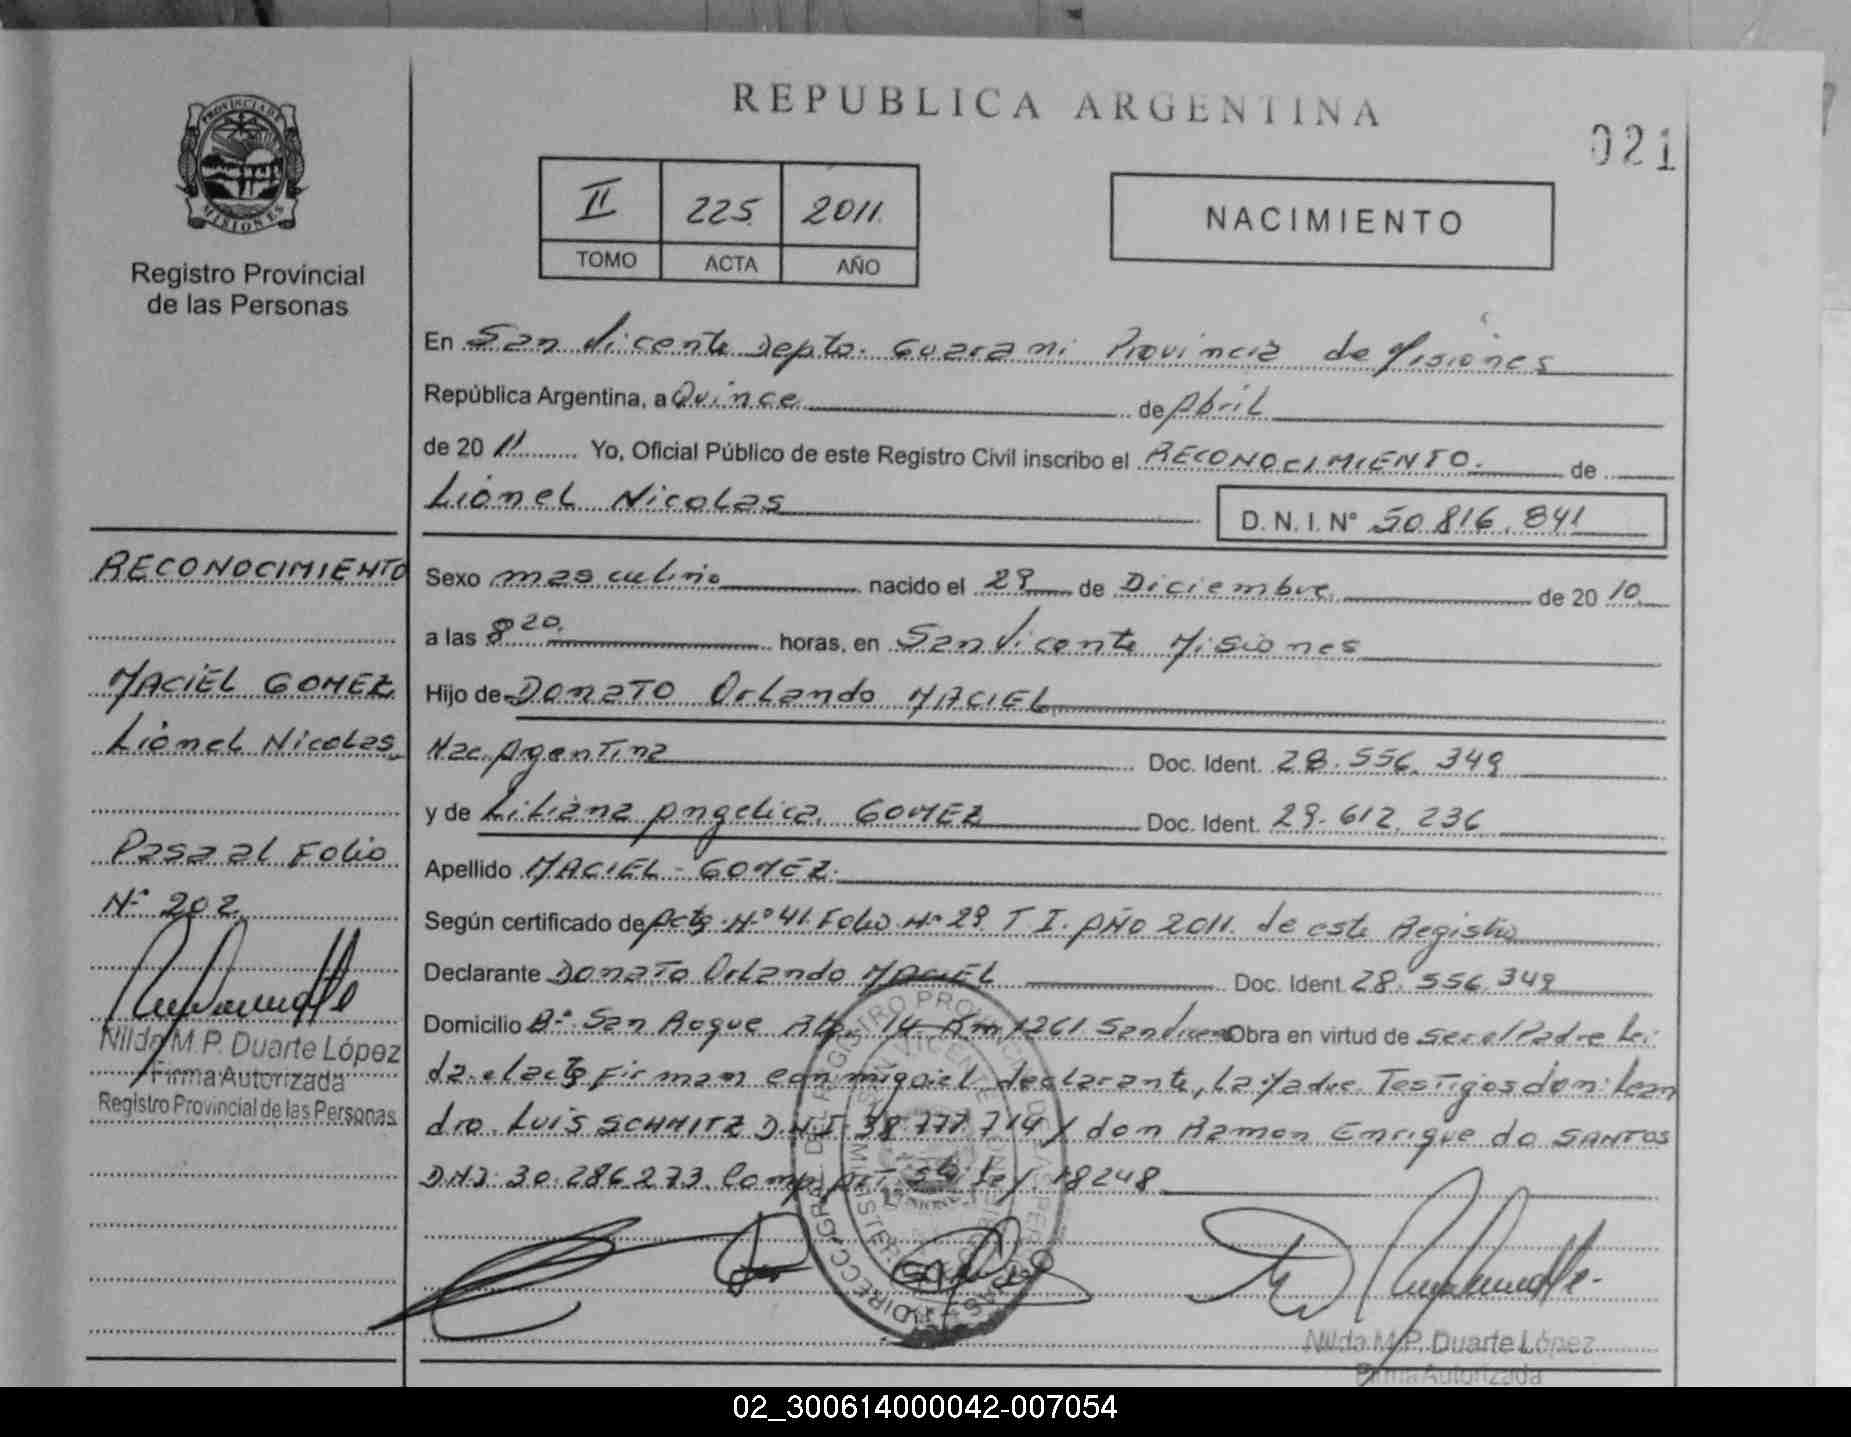 REPUBLICA ARGENTINA
021
PROVINCIA DE MISIONES
Registro Provincial
de las Personas
II 225 2011.
TOMO ACTA AÑO
NACIMIENTO
En San Vicente Depto. Guarani Provincia de Misiones
República Argentina, a Quince de Abril
de 20 11 Yo, Oficial Público de este Registro Civil inscribo el RECONOCIMIENTO. de
Lionel Nicolas D. N. I. N° 50.816.841
Sexo masculino nacido el 29 de Diciembre de 20 10
a las 8 20 horas, en San Vicente Misiones
Hijo de Donato Orlando MACIEL
Nac. Argentina Doc. Ident. 28.556.349
y de Liliana Angelica GOMEZ Doc. Ident. 29.612.236
Apellido MACIEL - GOMEZ.
Según certificado de Acta N° 41 Folio N° 29 T I. AÑO 2011. de este Registro
Declarante Donato Orlando MACIEL Doc. Ident. 28.556.349
Domicilio B° San Roque Km 1261 San Vicente Obra en virtud de ser el Padre Lei
da el acta firman conmigo el declarante, la Madre Testigos don: Lean
dro Luis SCHMITZ D.N.I. 38.777.714 y don Ramon Enrique do SANTOS
DNI 30.286.273. Comp. Art. Ley 18248
RECONOCIMIENTO
MACIEL GOMEZ
Lionel Nicolas
Pasa al Folio
N° 202
Nilda M.P. Duarte López
Firma Autorizada
Registro Provincial de las Personas
Nilda M.P. Duarte López
Firma Autorizada
02_300614000042-007054